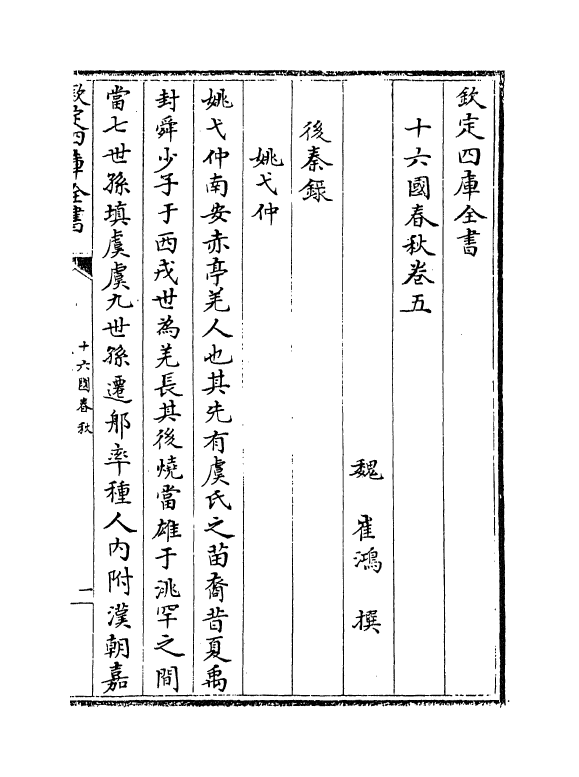 欽定四庫全書
十六國春秋卷五
魏 崔鴻 撰
後秦録
姚弋仲
姚弋仲南安赤亭羌人也其先有虞氏之苗裔昔夏禹
封舜少子于西戎世為羌長其後燒當雄于洮罕之間
當七世孫填虞虞九世孫遷郍率種人内附漢朝嘉
欽定四庫全書
十六國春秋
一